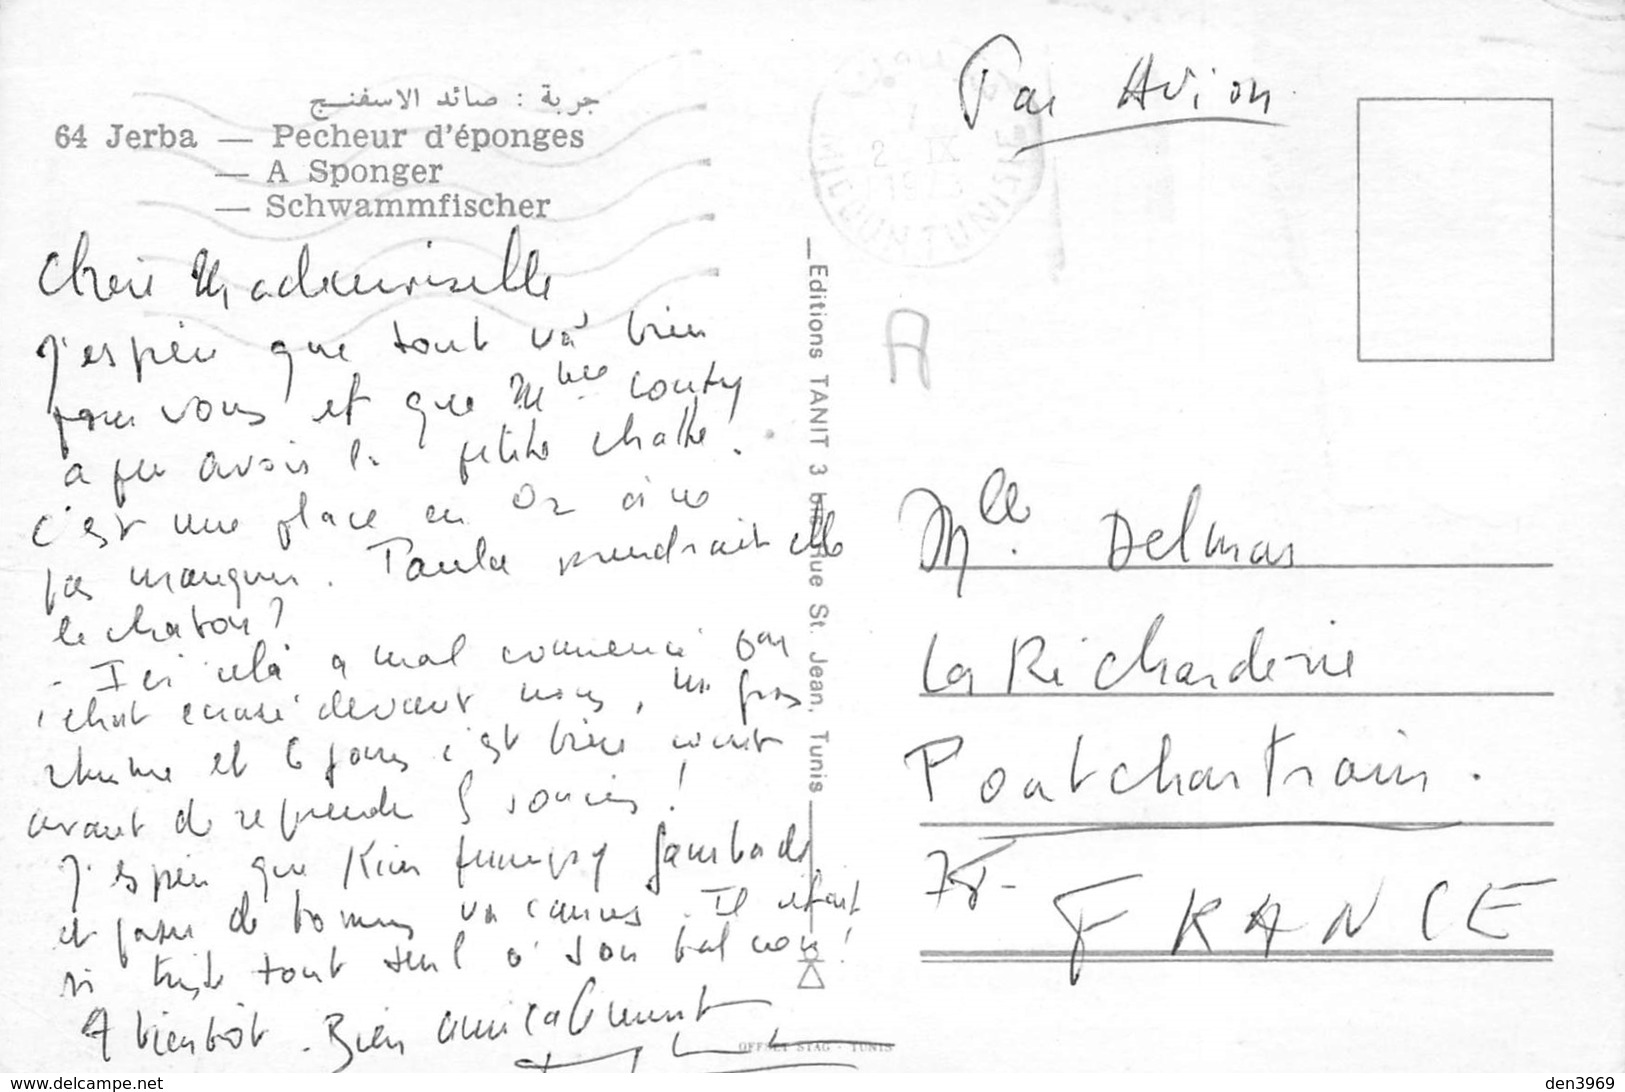 جربة : صائد الاسفنج
64 Jerba — Pecheur d'éponges
— A Sponger
— Schwammfischer
Chère Mademoiselle
J'espère que tout va bien
pour vous et que Mme Couty
a pu avoir la petite chatte.
C'est une place en or à ne
pas manquer. Paula prendrait elle
le chaton?
- Ici celà a mal commencé par
1 chat écrasé devant nous, un gros
rhume et 6 jours c'est bien court
avant de reprendre les soucis!
J'espère que Kien gambade
et passe de bonnes vacances. Il était
si triste tout seul à son balcon!
A bientôt. Bien amicalement
Editions TANIT 3 bis, Rue St. Jean, Tunis
OFFSET STAG - TUNIS
MIDOUN TUNISIE
2 IX
Par Avion
A
Mlle. Delmas
La Richarderie
Pontchartrain.
78-
FRANCE
www.delcampe.net
den3969